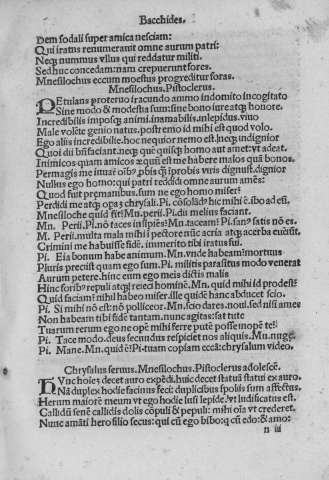 Bacchides.
Dem sodali super amica nesciam:
Qui iratus renumeravit omne aurum patri:
Neqꝫ nummus vllus qui reddatur militi.
Sed huc concedam: nam crepuerunt fores.
Mnesilochus eccum moestus progreditur foras.
Mnesilochus. Pistoclerus.
PEtulans proteruo iracundo animo indomito incogitato
Sine modo & modestia sum: sine bono iureatqꝫ honore.
Incredibilis imposqꝫ animi. inamabilis. inlepidus. viuo
Maleuolēte genio natus. postremo id mihi est quod volo.
Ego aliis incredibile. hoc nequior nemo est. necqꝫ indignior
Quoi dii bn̄faciant. neqꝫ quē quisqꝫ homo aut amet: vt adeat.
Inimicos quam amicos æquū est me habere malos quā bonos.
Permagis me
Nullus ego homo: qui patri reddidi omne aurum amēs:
Quod fuit pręmanibus. sum ne ego homo miser?
Perdidi me atqꝫ opā chrysali. Pi. cōsolādꝰ hic mihi ē. ibo ad eū.
Mnesiloche quid fit? Mn. perii. Pi. dii melius faciant.
Mn. Perii. Pi. nō taces insipiēs? Mn. taceam? Pi. sanꝰ satis nō es.
M. Perii. multa mala mihi i pectore nūc acria atqꝫ acerba eueiūt.
Crimini me habuisse fidē. immerito tibi iratus fui.
Pi. Eia bonum habe animum. Mn. vnde habeam? mortuus
Pluris preciist quam ego sum. Pi. militis parasitus modo venerat
Aurum petere. hinc eum ego meis dictis malis
Hinc foribꝰ repuli atqꝫ reieci hominē. Mn. quid mihi id prodest?
Quid faciam? nihil habeo miser. ille quidē hanc abducet scio.
Pi. Si mihi nō est: nō polliceor. Mn. scio dares. noui. sed nisi ames
Non habeam tibi fidē tantam. nunc agitas: sat tute
Tuarum rerum ego ne opē mihi ferre putē posse inopē te?
Pi. Tace modo. deus secundus respiciet nos aliquis. Mn. nugę.
Pi. Mane. Mn. quid ē? Pi. tuam copiam eccā: chrysalum video.
Chrysalus seruus. Mnesilochus. Pistoclerus adolescē.
HVuc hoiēꝫ decet auro expēdi. huic decet statuā statui ex auro.
Nā duplex hodie facinus feci: duplicibus spoliis sum affectus.
Herum maiorē meum vt ego hodie lusi lepide. vt ludificatus est.
Callidū senē callidis dolis cōpuli & pepuli: mihi oīa vt crederet.
Nunc amāti hero filio secus: qui cū ego bibo: qꝫ cū edo: & amo:
n iii